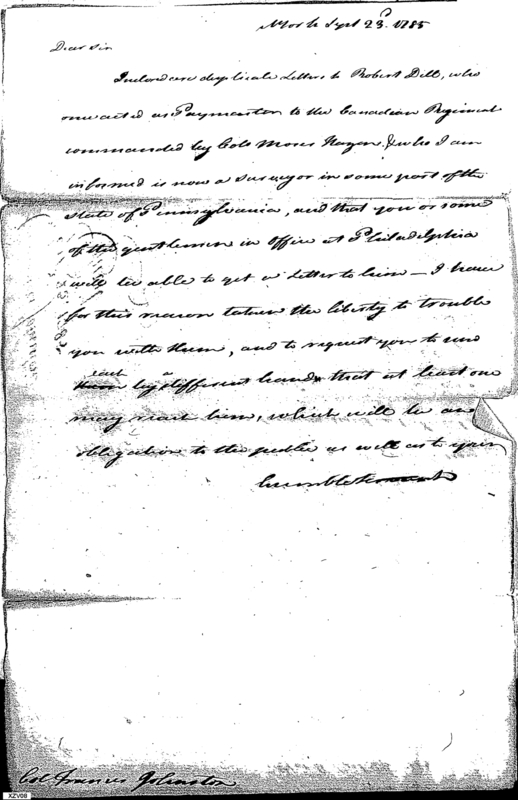 York Sept 23d. 1785
Dear Sir
Inclosed are duplicate Letters to Robert Dill, who
once acted as Paymaster to the Canadian Regiment
commanded by Colo Moses Hazen, & who I am
informed is now a surveyor in some part of the
state of Pennsylvania, and that you or some
of the gentlemen in office at Philadelphia
will be able to get a Letter to him — I have
for this reason taken the liberty to trouble
you with them, and to request you to send
each a
them by different hand that at least one
may reach him, which will be an
obligation to the public as well as to your
humble servant
Col Francis Johnston
XZV08